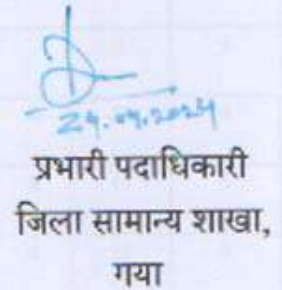 24.09.2024
प्रभारी पदाधिकारी
जिला सामान्य शाखा,
गया